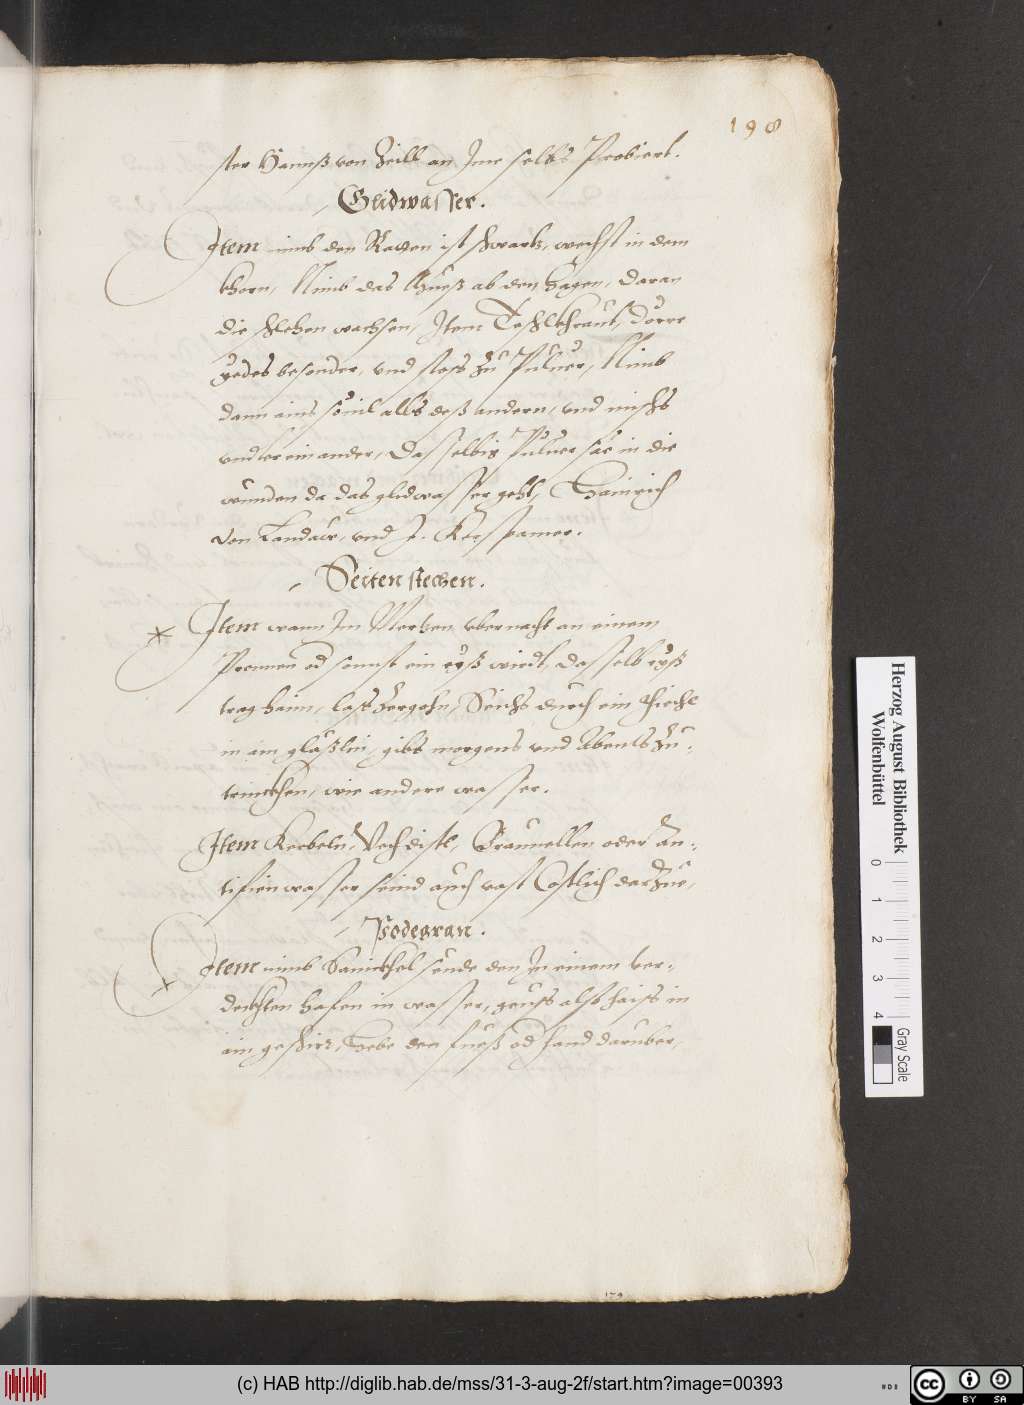 198
ster Hannß von Zeill an Ime selbs Probiert.
Glidwasser.
Item nimb den Ratzen ist schwartz, wechst in dem
khorn, Nimb das Mueß ab den Hagen, daran
die schlehen wachsen, Item Teschlkhraut, dörre
yedes besonder, und stoss zu Puluer, Nimb
dann ains souil alls deß andern, vnd mischs
vndter einander, Dasselbig Puluer säe in die
wunden da das glidwasser geht, Hainrich
von Landaw, vnd J.
Seiten stechen.
Item wann Im Mertzen vbernacht an einem
Pronnen od sonnst ein eyß wirdt, dasselb eyß
trag haim, lass zergehn, Seichs durch ein thiechl
in ain glaßlin, gibs morgens vnd Abents zu
trinckhen, wie andere wasser.
Item Kerbeln, Vechdistl, Praunellen oder An-
tifien wasser seind auch vast Cöstlich darzue,
Podegran.
Item nimb Sanickhel seude den In einem ver-
deckhten hafen in wasser, geuss also haiss in
ain geschirr, Hebe den fueß od hand darüber,
Herzog August Bibliothek
Wolfenbüttel
0 1 2 3 4
Gray Scale
(c) HAB http://diglib.hab.de/mss/31-3-aug-2f/start.htm?image=00393
cc BY SA